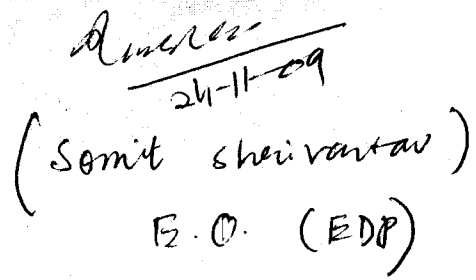 24-11-09
(Somit Shrivastav)
E.O. (EDP)